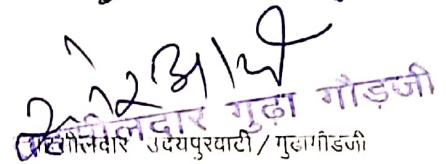 तहसीलदार गुढ़ा गौड़जी
तहसीलदार उदयपुरवाटी / गुढागौडजी